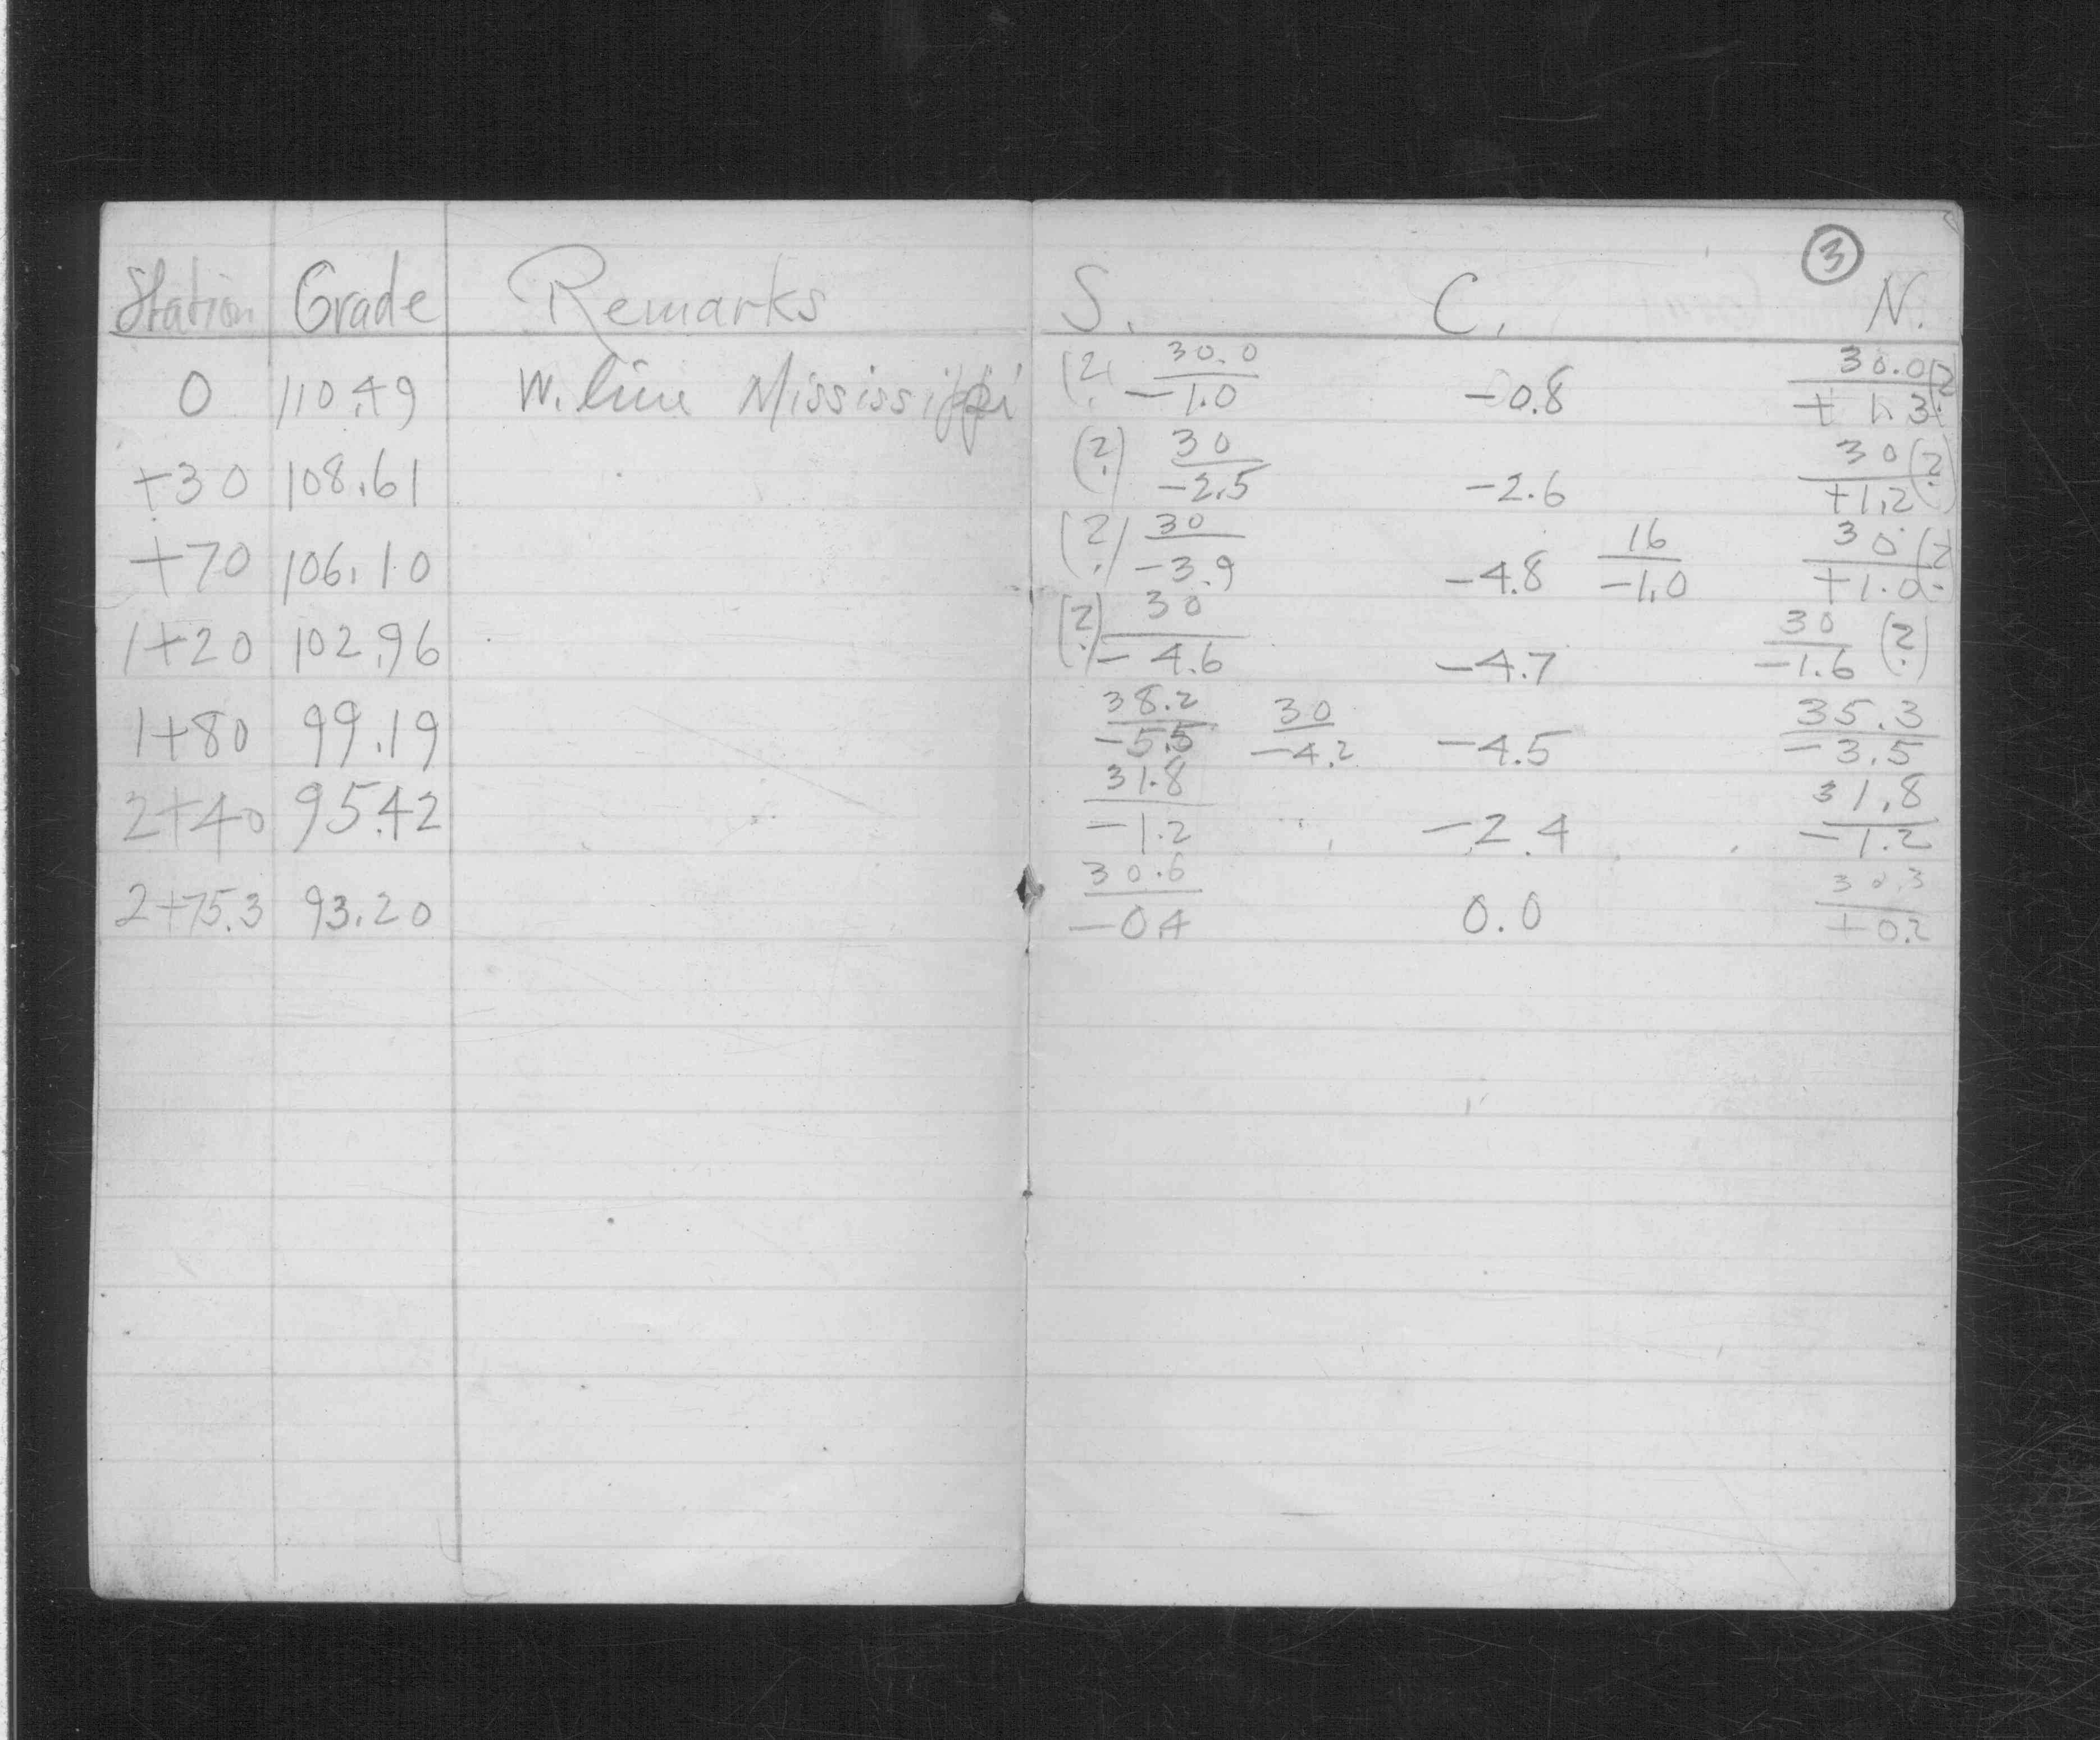 ③
Station Grade Remarks S. C. N.
0 110.49 W. line Mississippi (?) 30.0/-1.0 -0.8 30.0/+1.3 (?)
+30 108.61 (?) 30/-2.5 -2.6 30/+1.2 (?)
+70 106.10 (?) 30/-3.9 -4.8 16/-1.0 30/+1.0 (?)
1+20 102.96 (?) 30/-4.6 -4.7 30/-1.6 (?)
1+80 99.19 38.2/-5.5 30/-4.2 -4.5 35.3/-3.5
2+40 95.42 31.8/-1.2 -2.4 31.8/-1.2
2+75.3 93.20 30.6/-0.4 0.0 30.3/+0.2